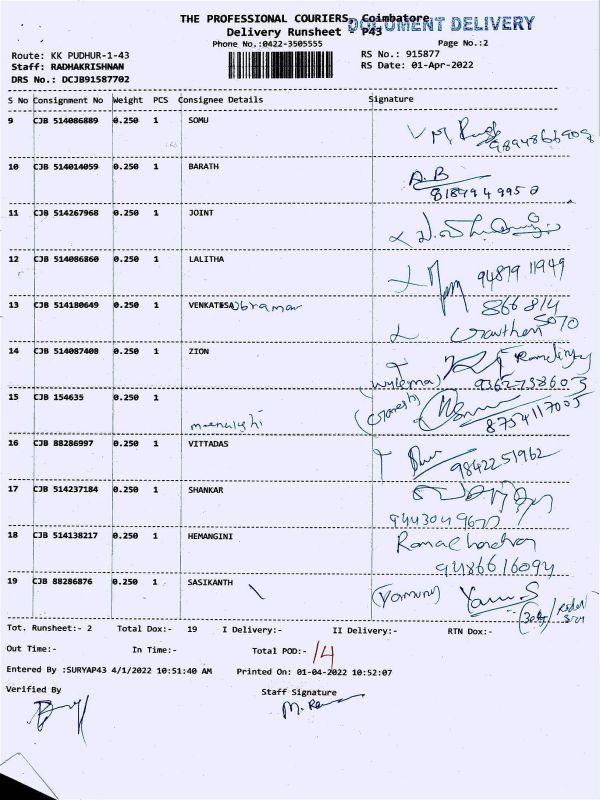 THE PROFESSIONAL COURIERS, Coimbatore
DOCUMENT DELIVERY
Delivery Runsheet - P43
Phone No.:0422-3505555
Page No.:2
Route: KK PUDHUR-1-43
RS No.: 915877
Staff: RADHAKRISHNAN
RS Date: 01-Apr-2022
DRS No.: DCJB91587702
S No Consignment No Weight PCS Consignee Details Signature
9 CJB 514086889 0.250 1 SOMU
10 CJB 514014059 0.250 1 BARATH A.B
11 CJB 514267968 0.250 1 JOINT
12 CJB 514086860 0.250 1 LALITHA 94879 11949
13 CJB 514180649 0.250 1 VENKATESA
14 CJB 514087408 0.250 1 ZION
9362738603
15 CJB 154635 0.250 1
(Ganesh) 8754117005
16 CJB 88286997 0.250 1 VITTADAS 9842251962
17 CJB 514237184 0.250 1 SHANKAR
18 CJB 514138217 0.250 1 HEMANGINI Ramachandran
9486616094
19 CJB 88286876 0.250 1 SASIKANTH Yamu.S
Tot. Runsheet:- 2 Total Dox:- 19 I Delivery:- II Delivery:- RTN Dox:-
Out Time:- In Time:- Total POD:- 14
Entered By :SURYAP43 4/1/2022 10:51:40 AM Printed On: 01-04-2022 10:52:07
Verified By Staff Signature